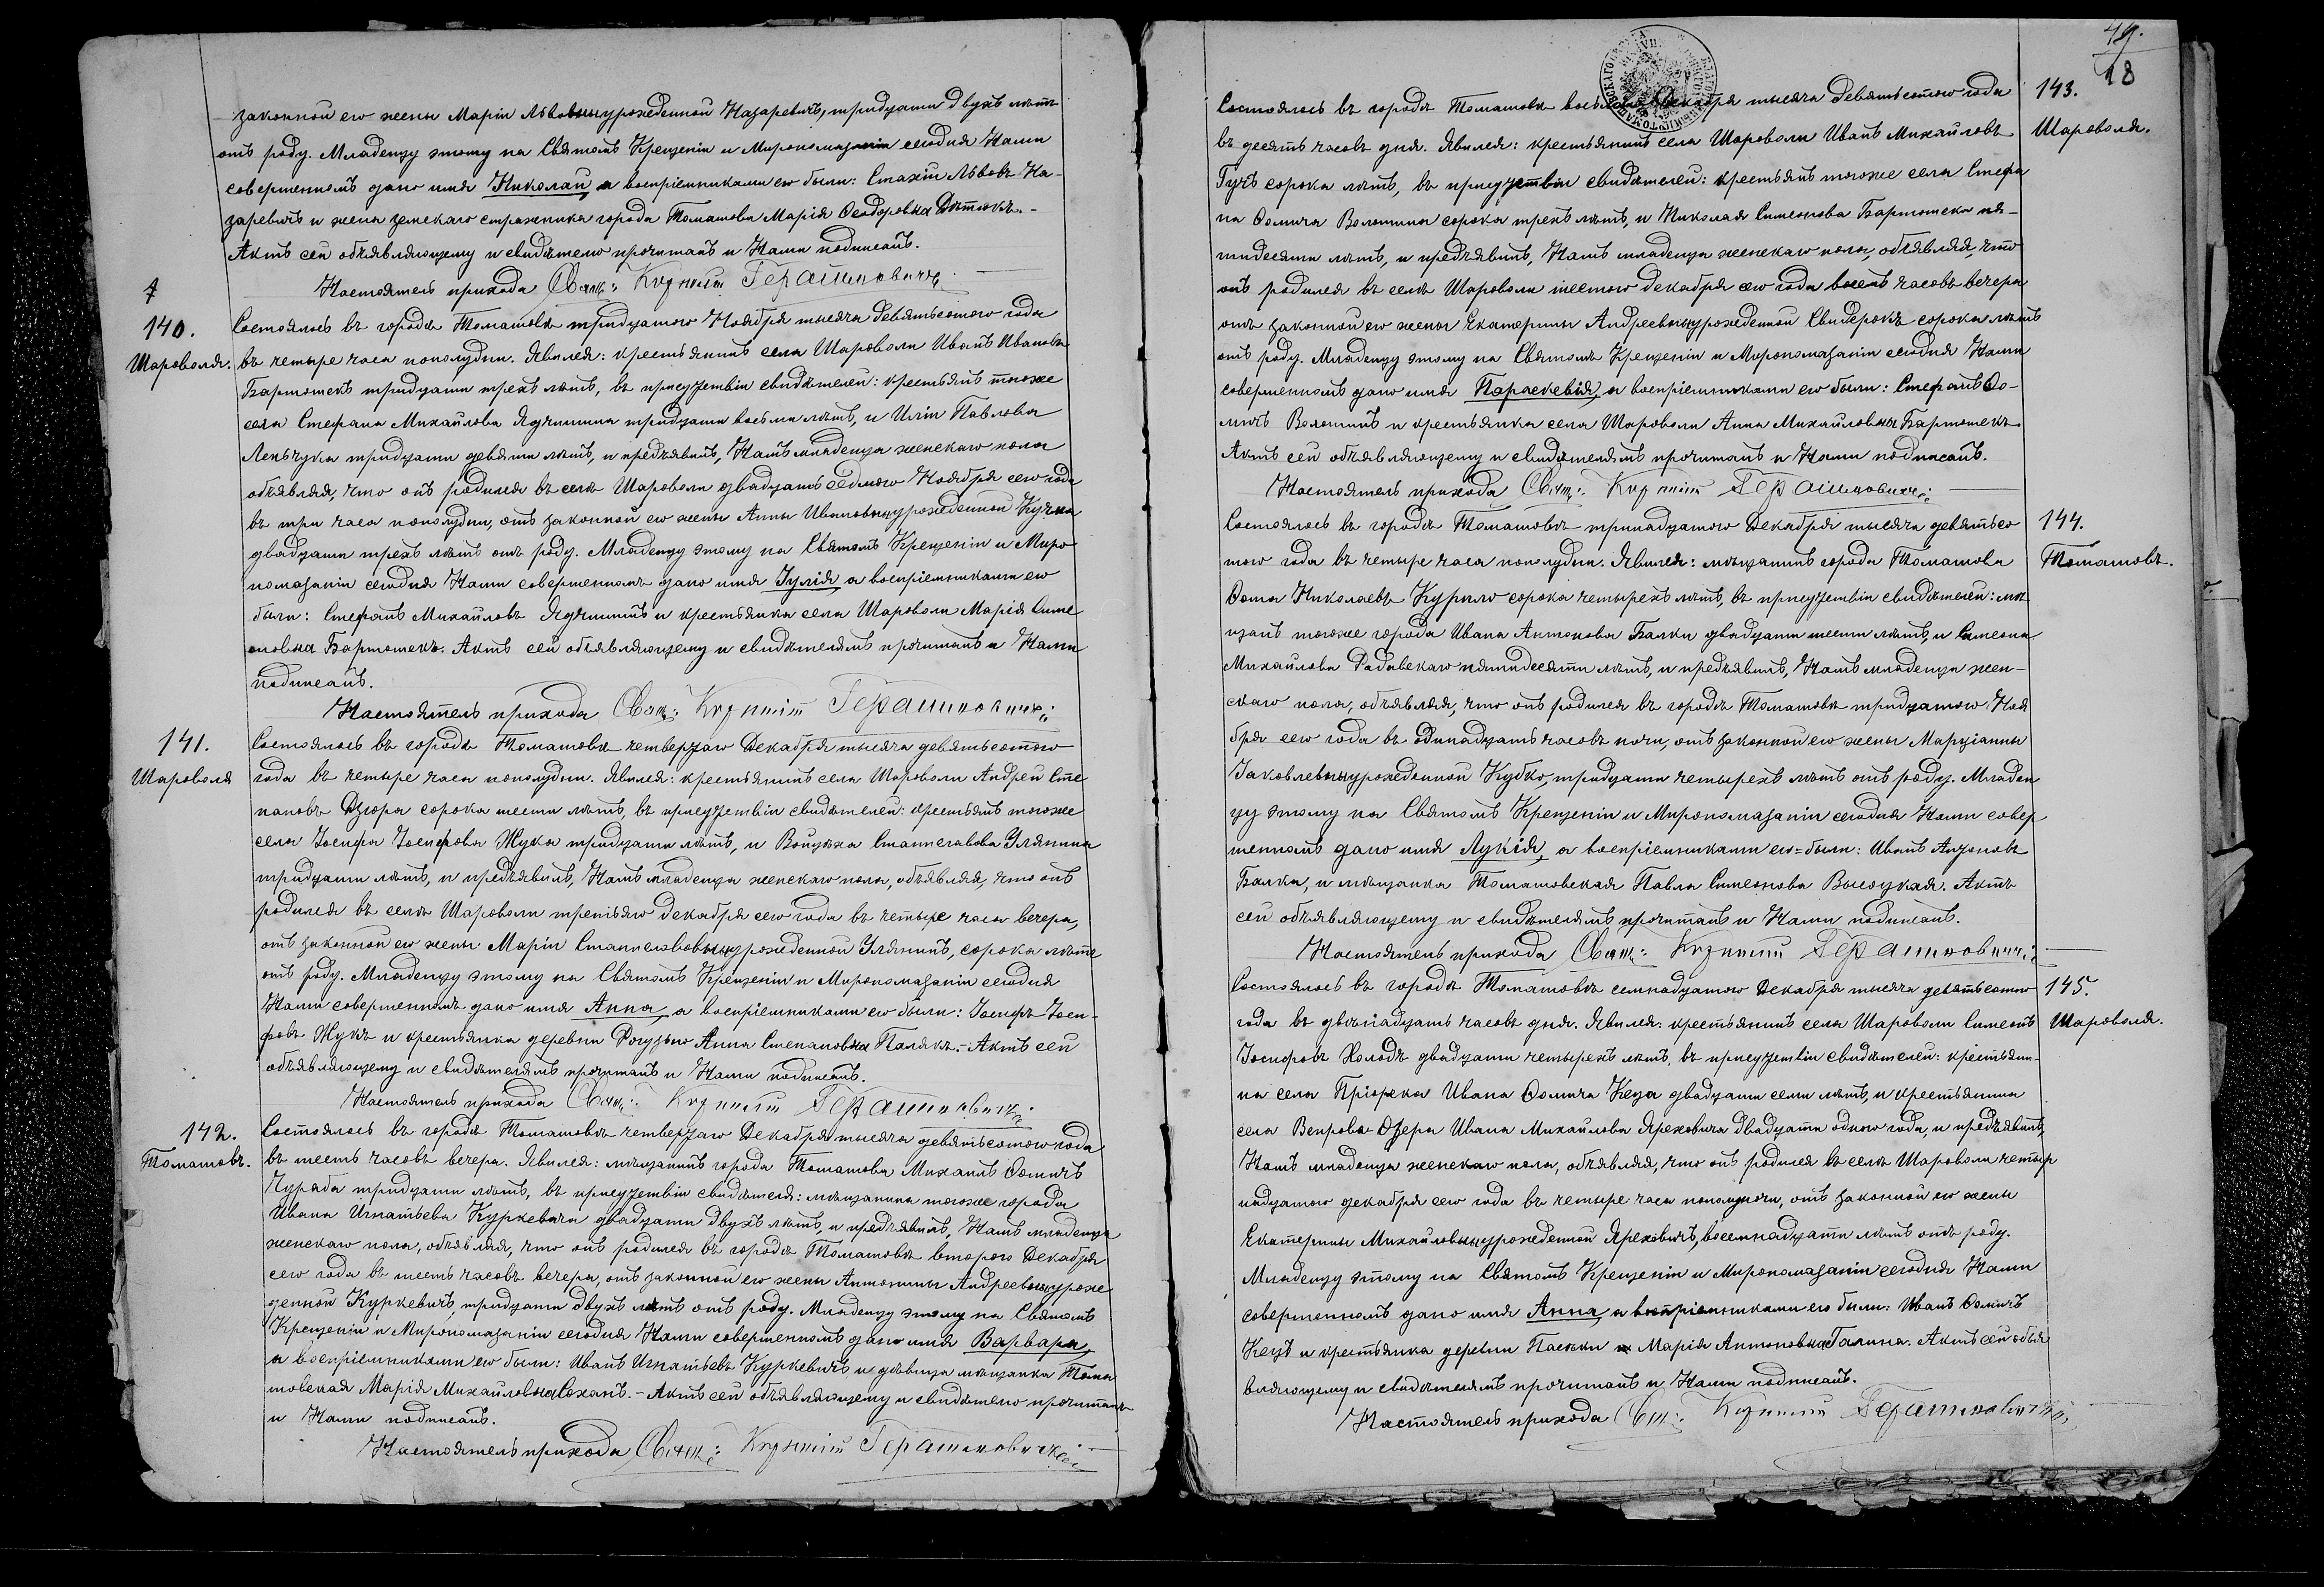 законной его жены Маріи Львовны урожденной Назаревичъ, тридцати двухъ лѣтъ
отъ роду. Младенцу этому на Святомъ Крещеніи и Миропомазаніи сегодня Нами
совершенномъ дано имя Николай, а воспріемниками его были: Стахій Львовъ На-
заревичъ и жена земскаго стражника города Томашова Марія Ѳеодоровна
Актъ сей объявляющему и свидѣтелю прочитанъ и Нами подписанъ.
Настоятель прихода Свящ: Герашиновичъ
140.
Шароволя.
Состоялось въ городѣ Томашовѣ тридцатого Ноября тысяча девятьсотого года
въ четыре часа пополудни. Явился: крестьянинъ села Шароволи Иванъ Ивановъ
Бартошекъ тридцати трехъ лѣтъ, въ присутствіи свидѣтелей: крестьянъ тогоже
села Стефана Михайлова Ядчишина тридцати восьми лѣтъ, и Иліи Павлова
Леньчука тридцати девяти лѣтъ, и предъявилъ, Намъ младенца женскаго пола
объявляя, что онъ родился въ селѣ Шароволи двадцать седмого Ноября сего года
въ три часа пополудни, отъ законной его жены Анны Ивановны урожденной Кучма
двадцати трехъ лѣтъ отъ роду. Младенцу этому на Святомъ Крещеніи и Миро
помазаніи сегодня Нами совершенномъ дано имя Іулія а воспріемниками его
были: Стефанъ Михайловъ Ядчишинъ и крестьянка села Шароволи Марія Симе
оновна Бартошекъ. Актъ сей объявляющему и свидѣтелямъ прочитанъ и Нами
подписанъ.
Настоятель прихода Свящ: Герашиновичъ
141.
Шароволя
Состоялось въ городѣ Томашовѣ четвертаго Декабря тысяча девятьсотого
года въ четыре часа пополудни. Явился: крестьянинъ села Шароволи Андрей Сте
пановъ Дзюра сорока шести лѣтъ, въ присутствіи свидѣтелей: крестьянъ тогоже
села Іосифа Іосифова Жука тридцати лѣтъ, и Войцѣха Станиславова Улянина
тридцати лѣтъ, и предъявилъ, Намъ младенца женскаго пола, объявляя, что онъ
родился въ селѣ Шароволи третьяго Декабря сего года въ четыре часа вечера,
отъ законной его жены Маріи Станиславовны урожденной Улянинъ, сорока лѣтъ
отъ роду. Младенцу этому на Святомъ Крещеніи и Миропомазаніи сегодня
Нами совершенномъ дано имя Анна, а воспріемниками его были: Іосифъ Іоси-
фовъ Жукъ и крестьянка деревни Рогузьно Анна Степановна Палякъ.- Актъ сей
объявляющему и свидѣтелямъ прочитанъ и Нами подписанъ.
Настоятель прихода Свящ: Герашиновичъ
142.
Томашовъ.
Состоялось въ городѣ Томашовѣ четвертаго Декабря тысяча девятьсотого года
въ шесть часовъ вечера. Явился: мѣщанинъ города Томашова Михаилъ Ѳомичъ
Пурада тридцати лѣтъ, въ присутствіи свидѣтеля: мѣщанина тогоже города
Ивана Игнатьева Куркевича двадцати двухъ лѣтъ, и предъявилъ, Намъ младенца
женскаго пола, объявляя, что онъ родился въ городѣ Томашовѣ второго Декабря
сего года въ шесть часовъ вечера, отъ законной его жены Антонины Андреевны урож
денной Куркевичъ, тридцати двухъ лѣтъ отъ роду. Младенцу этому на Святомъ
Крещеніи и Миропомазаніи сегодня Нами совершенномъ дано имя Варвара,
а воспріемниками его были: Иванъ Игнатьевъ Куркевичъ и дѣвица мѣщанка Тома
шовская Марія Михайловна Соханъ.- Актъ сей объявляющему и свидѣтелю прочитанъ
и Нами подписанъ.
Настоятель прихода Свящ: Герашиновичъ
18
143.
Шароволя.
Состоялось въ городѣ Томашовѣ Декабря тысяча девятьсотого года
въ десять часовъ дня. Явился: крестьянинъ села Шароволи Иванъ Михайловъ
Гучъ сорока лѣтъ, въ присутствіи свидѣтелей: крестьянъ тогоже села Стефа
на Ѳомича Волошина сорока трехъ лѣтъ, и Николая Симеонова Бартошека пя-
тидесяти лѣтъ, и предъявилъ, Намъ младенца женскаго пола, объявляя, что
онъ родился въ селѣ Шароволи шестого декабря сего года восемь часовъ вечера
отъ законной его жены Екатерины Андреевны урожденной Свидерокъ сорока лѣтъ
отъ роду. Младенцу этому на Святомъ Крещеніи и Миропомазаніи сегодня Нами
совершенномъ дано имя Параскевія, а воспріемниками его были: Стефанъ Ѳо-
мичъ Волошинъ и крестьянка села Шароволи Анна Михайловна Бартошекъ
Актъ сей объявляющему и свидѣтелямъ прочитанъ и Нами подписанъ.
Настоятель прихода Свящ: Герашиновичъ
144.
Томашовъ.
Состоялось въ городѣ Томашовѣ тринадцатого Декабря тысяча девятьсо
того года въ четыре часа пополудни. Явился: мѣщанинъ города Томашова
Ѳома Николаевъ Курило сорока четырехъ лѣтъ, въ присутствіи свидѣтелей: мѣ
щанъ тогоже города Ивана Антонова Балки двадцати шести лѣтъ, и Симеона
Михайлова Радавскаго пятидесяти лѣтъ, и предъявилъ, Намъ младенца жен-
скаго пола, объявляя, что онъ родился въ городѣ Томашовѣ тридцатого Ноя
бря сего года въ одинадцать часовъ ночи, отъ законной его жены Марціанны
Іаковлевны урожденной Кубко, тридцати четырехъ лѣтъ отъ роду. Младен
цу этому на Святомъ Крещеніи и Миропомазаніи сегодня Нами совер
шенномъ дано имя Лукія, а воспріемниками его были: Иванъ Антоновъ
Балка, и мѣщанка Томашовская Павла Симеонова Высоцкая. Актъ
сей объявляющему и свидѣтелямъ прочитанъ и Нами подписанъ.
Настоятель прихода Свящ: Герашиновичъ
145.
Шароволя.
Состоялось въ городѣ Томашовѣ семнадцатого Декабря тысяча девятьсотого
года въ двѣнадцать часовъ дня. Явился: крестьянинъ села Шароволи Симеонъ
Іосифовъ Холодъ двадцати четырехъ лѣтъ, въ присутствіи свидѣтелей: крестьяни-
на села Пріорска Ивана Ѳомича Кеца двадцати семи лѣтъ, и крестьянина
села Вепрова-Озера Ивана Михайлова Яреховича двадцати одного года, и предъявилъ,
Намъ младенца женскаго пола, объявляя, что онъ родился въ селѣ Шароволи четыр
надцатого декабря сего года въ четыре часа пополуночи, отъ законной его жены
Екатерины Михайловны урожденной Яреховичъ, восемнадцати лѣтъ отъ роду.
Младенцу этому на Святомъ Крещеніи и Миропомазаніи сегодня Нами
совершенномъ дано имя Анна, а воспріемниками его были: Иванъ Ѳомичъ
Кецъ и крестьянка деревни Пасѣки Марія Антоновна Галина. Актъ сей объя
вляющему и свидѣтелямъ прочитанъ и Нами подписанъ.
Настоятель прихода Свящ: Герашиновичъ